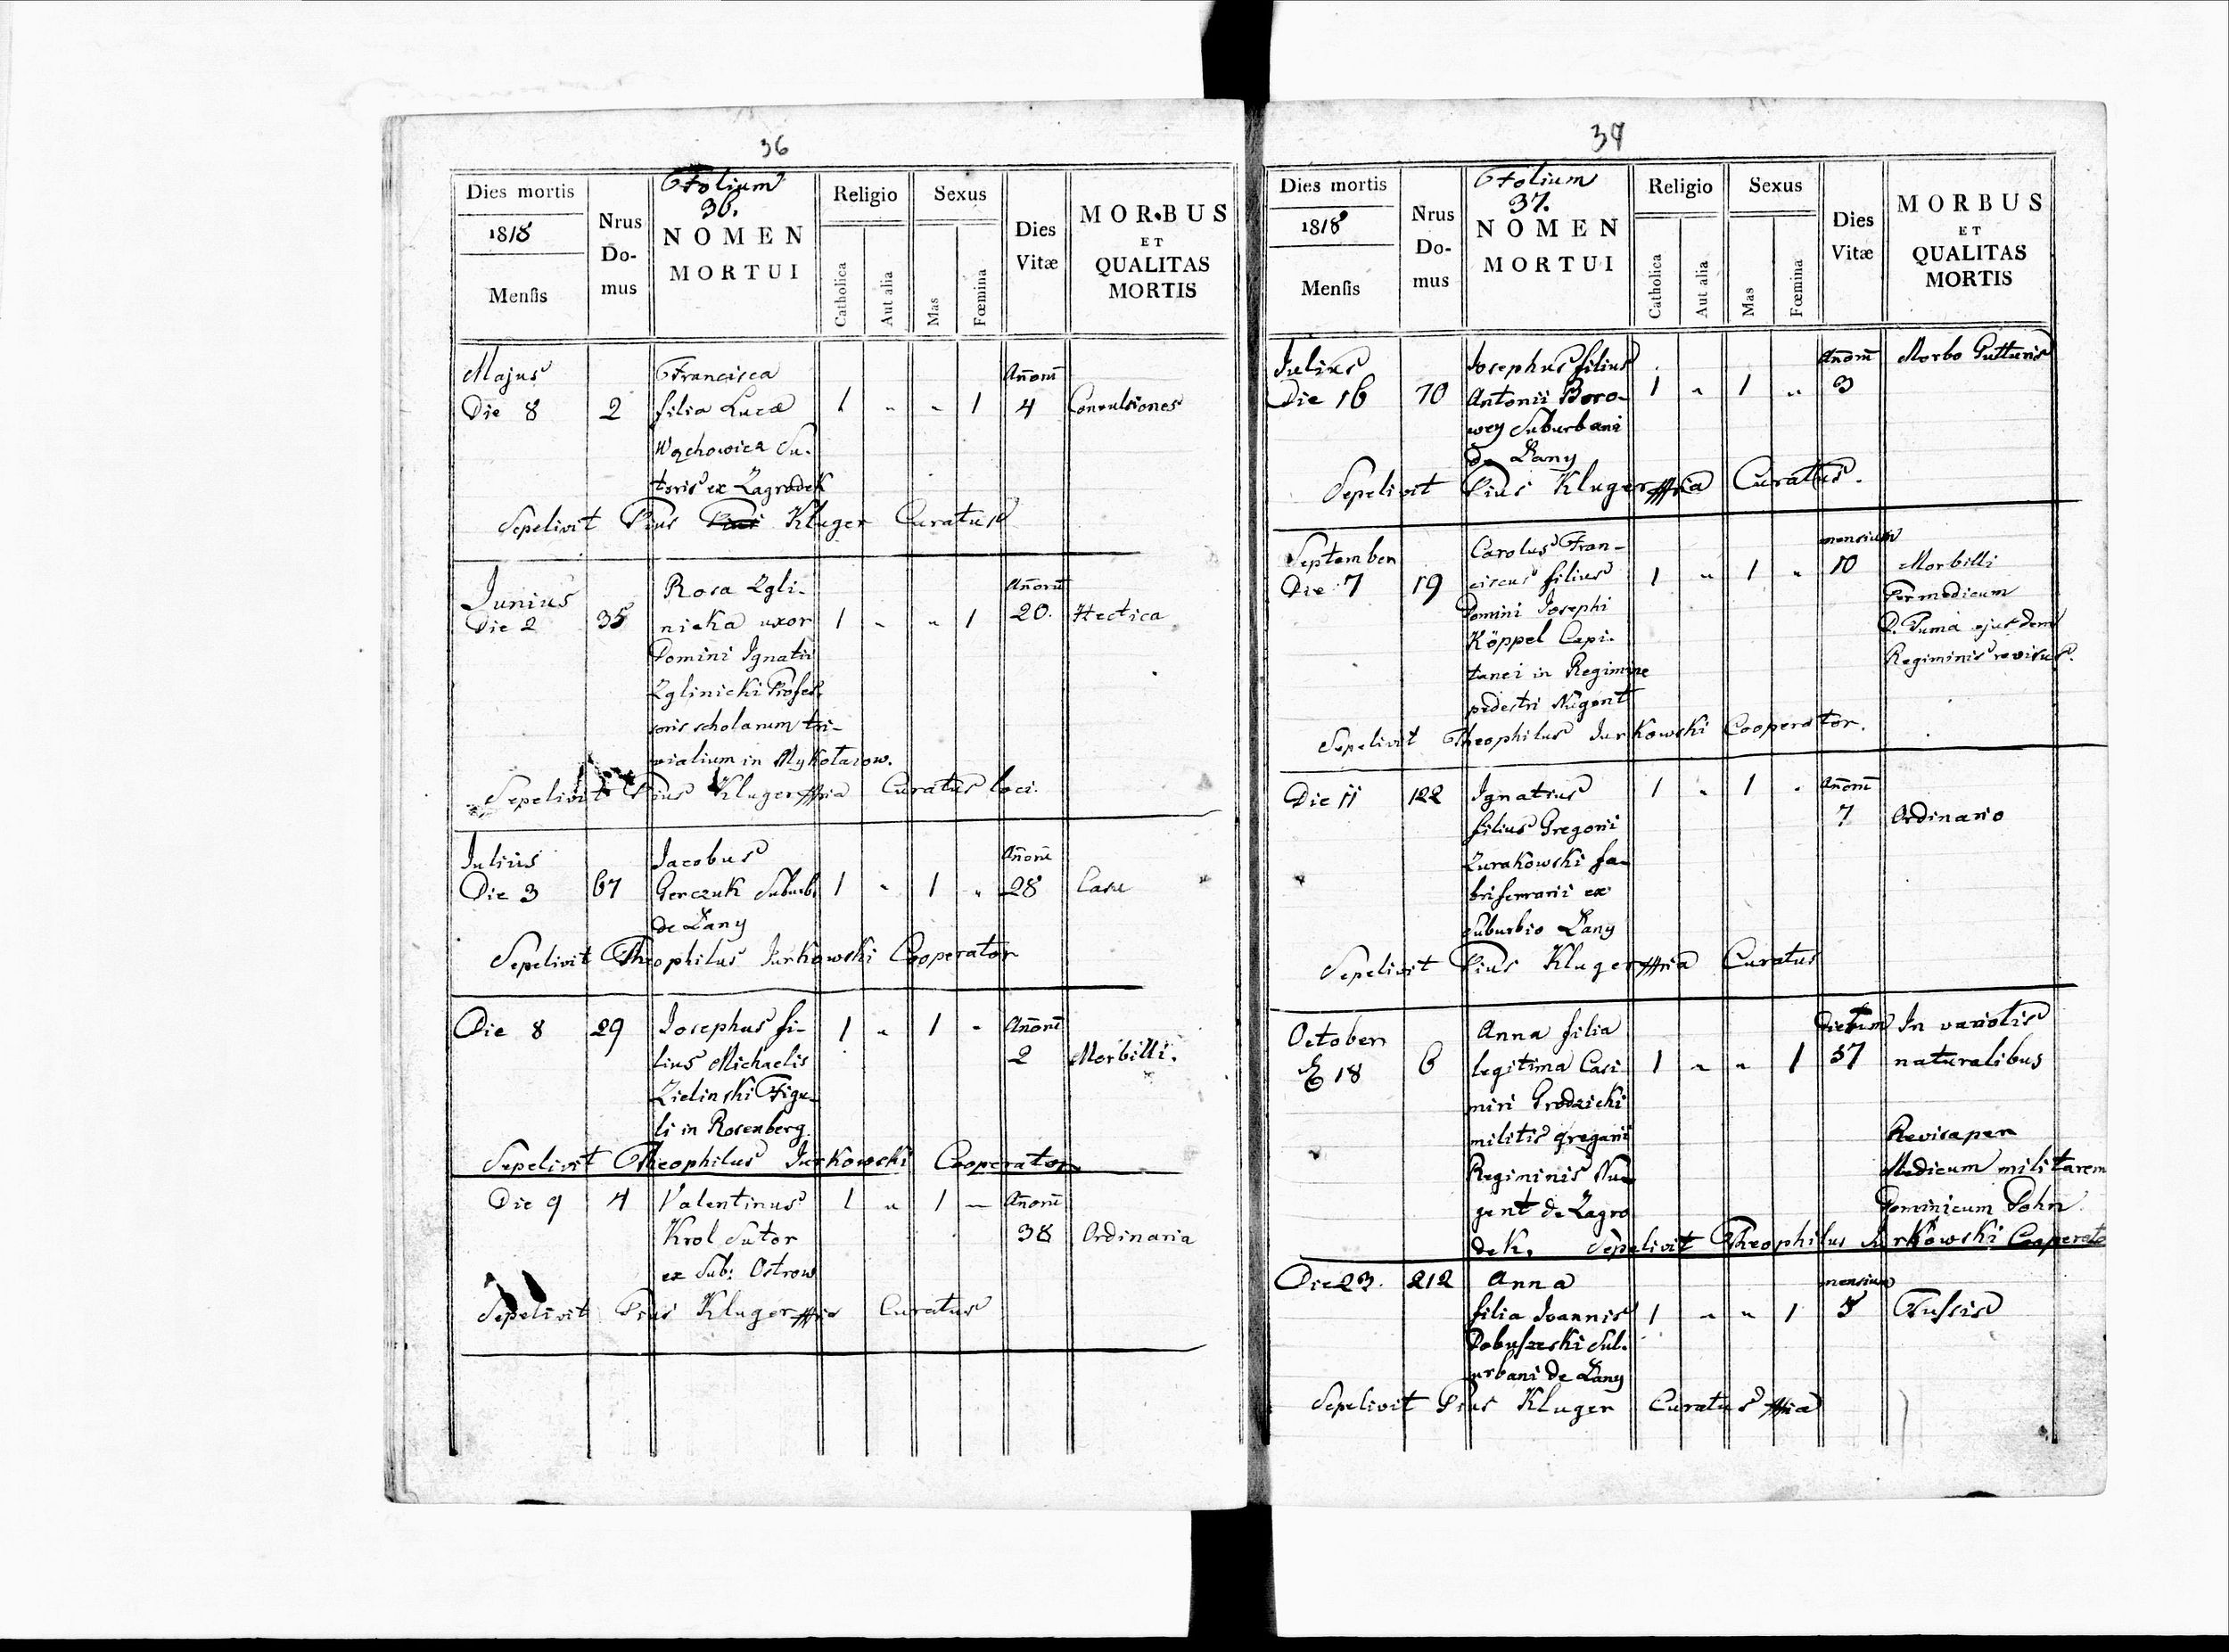 36
Dies mortis
1818
Mensis
Nrus Do-mus
Folium 36.
NOMEN MORTUI
Religio
Catholica
Aut alia
Sexus
Mas
Fœmina
Dies Vitæ
MORBUS ET QUALITAS MORTIS
Majus Francisca Añorũ
Die 8 2 filia Lucæ 1 " " 1 4 Convulsiones
Wąchowicz Su-
toris ex Zagrodek
Sepelivit Pius Kluger Curatus
Junius Rosa Zgli- Añorũ
Die 2 35 nicka uxor 1 " " 1 20. Hectica
Domini Ignatii
Zglinicki Profes-
soris scholarum tri-
vialium in Mykołaiow.
Sepelivit Pius Kluger Curatus loci.
Julius Jacobus Añorũ
Die 3 67 Gerczuk Suburb: 1 " 1 " 28 Casu
de Łany
Sepelivit Theophilus Jurkowski Cooperator
Die 8 29 Josephus fi- 1 " 1 " Añorũ
lius Michaelis 2 Morbilli.
Zielinski Figu-
li in Rosenberg.
Sepelivit Theophilus Jurkowski Cooperator
Die 9 4 Valentinus 1 " 1 — Añorũ
Krol Sutor 38 Ordinaria
ex Sub: Ostrow
Sepelivit Pius Kluger Curatus
37
Dies mortis
1818
Mensis
Nrus Do-mus
Folium 37.
NOMEN MORTUI
Religio
Catholica
Aut alia
Sexus
Mas
Fœmina
Dies Vitæ
MORBUS ET QUALITAS MORTIS
Julius Josephus filius Añorũ Morbo Gutturis
Die 16 70 Antonii Boro- 1 " 1 " 3
wey Suburbani
de Łany
Sepelivit Pius Kluger Curatus.
September Carolus Fran- mensium
Die 7 19 ciscus filius 1 " 1 " 10 Morbilli
Domini Josephi Per medicum
Köppel Capi- D. Tuma ejusdem
tanei in Regimine Regiminis revisus.
pedestri Nugent
Sepelivit Theophilus Jurkowski Cooperator.
Die 11 122 Ignatius 1 " 1 " Añorũ
filius Gregorii 7 Ordinario
Zurakowski fa-
bri ferrarii ex
suburbio Łany
Sepelivit Pius Kluger Curatus
October Anna filia Dierum In variolis
18 6 legitima Casi- 1 " " 1 37 naturalibus
miri Grodzicki
militis gregarii Revisa per
Regiminis Nu- Medicum militarem
gent de Zagro Dominicum Pohn
dek, Sepelivit Theophilus Jurkowski Cooperato
Die 23. 212 Anna mensium
filia Joannis 1 " " 1 5 Tussis
Dobuszeski Sub-
urbani de Łany
Sepelivit Pius Kluger Curatus